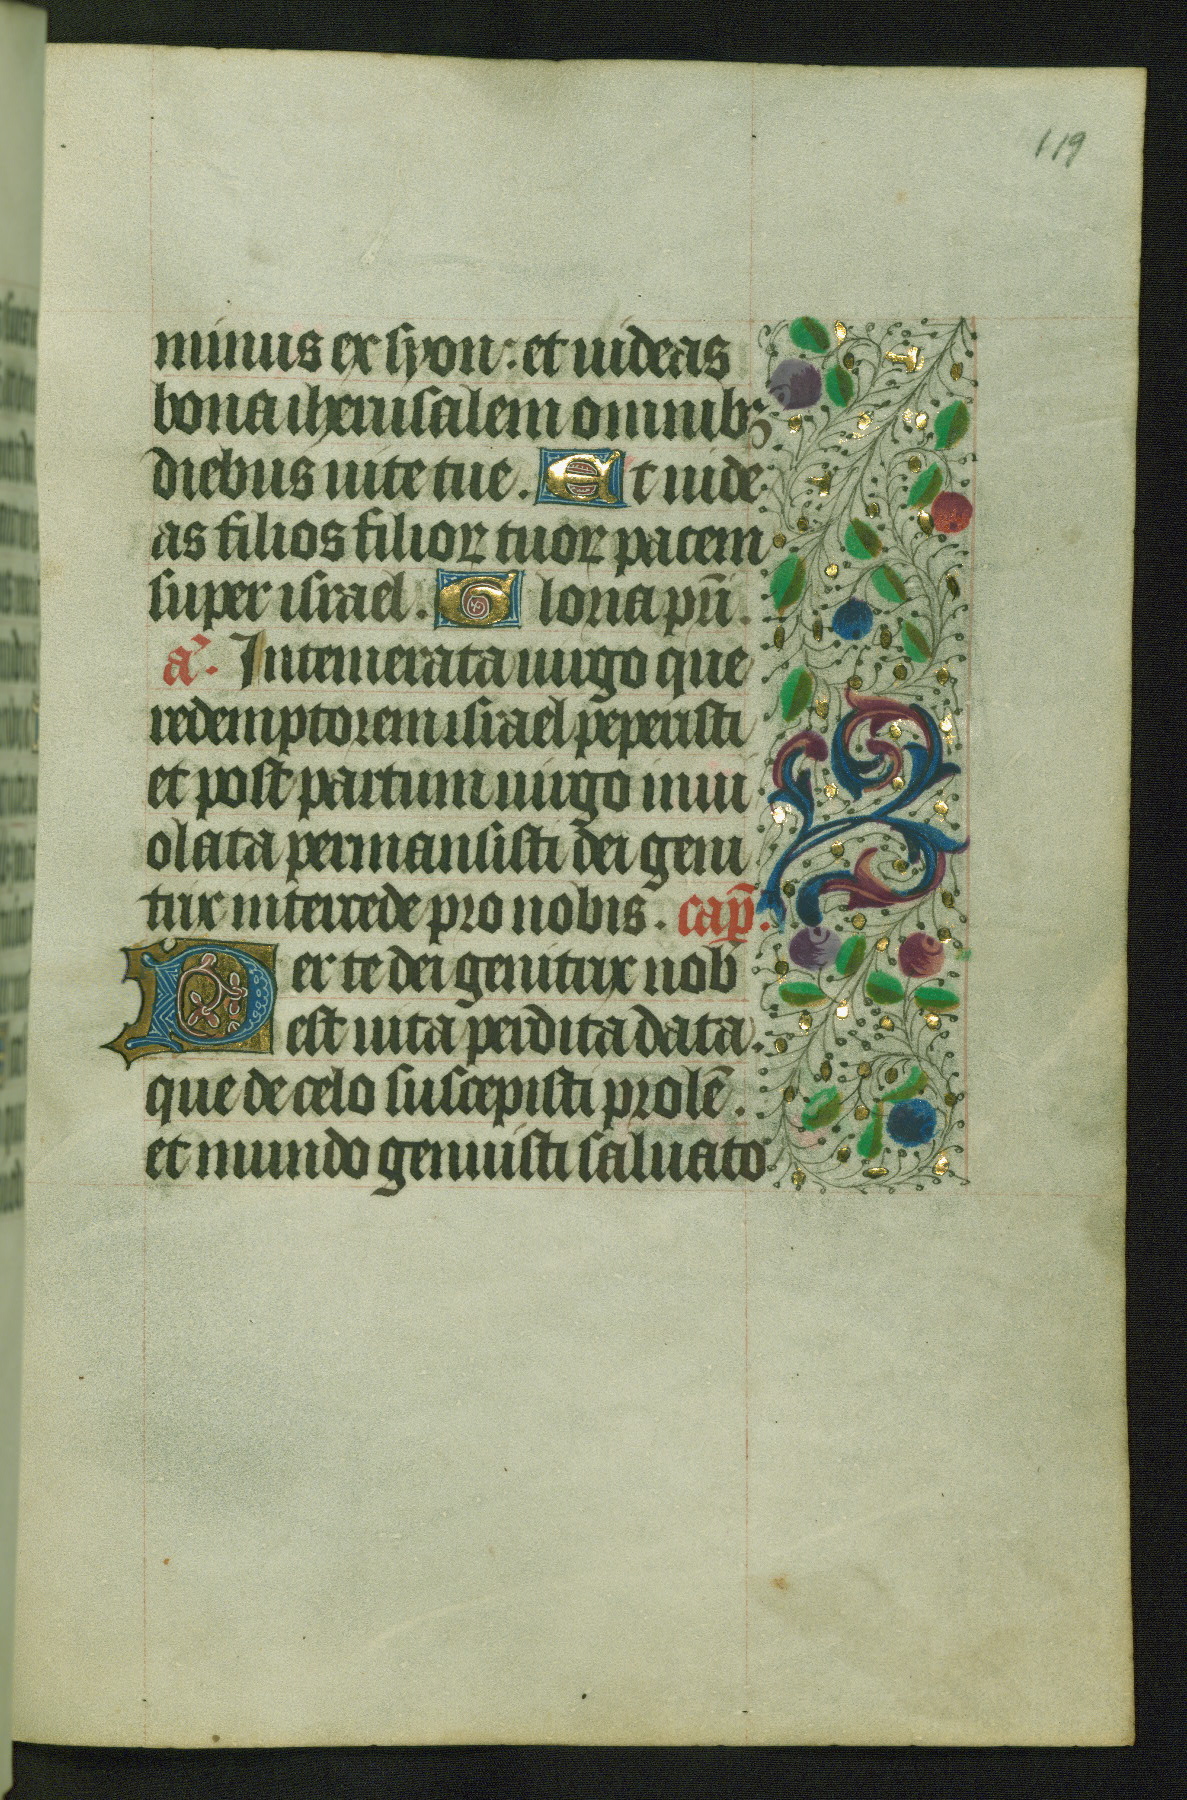 119
minus ex syon: et uideas
bona iherusalem omnibꝫ
diebus uite tue. Et uide
as filios filioꝝ tuoꝝ pacem
super israel. Gloria pri̅.
a. Intemerata uirgo que
redemptorem israel peperisti
et post partum uirgo inui
olata permansisti dei geni
trix intercede pro nobis. cap̅.
Per te dei genitrix nob
est uita perdita data.
que de celo suscepisti prole̅.
et mundo genuisti saluato